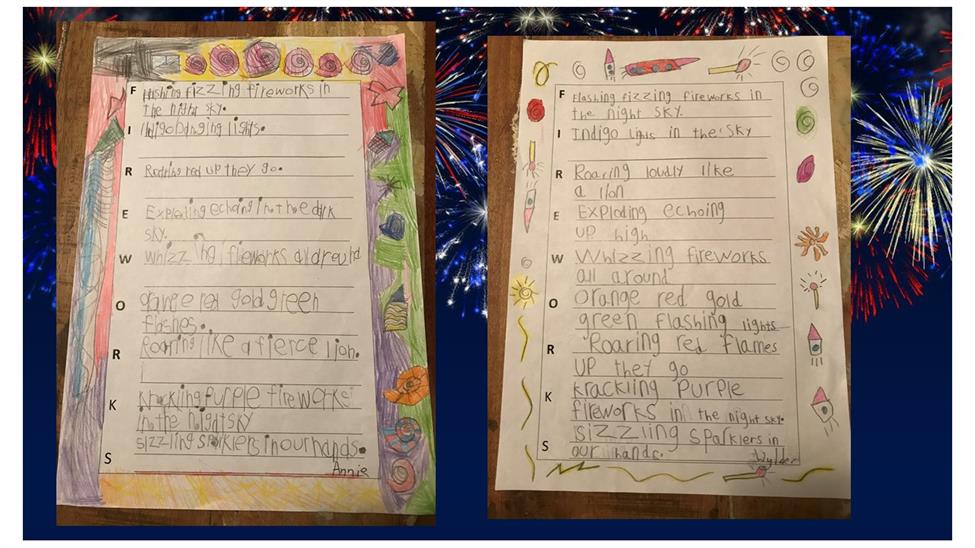 F Flashing fizzing fireworks in
the night sky.
I Indigo banging lights.
R red up they go.
E Exploding echoing in the dark
sky.
W Whizzing fireworks all around
O orange red gold green
flashes.
R Roaring like a fierce lion.
K Krackling purple fireworks
in the sky
S sizzling sparklers in our hands.
Annie
F Flashing fizzing fireworks in
the night sky.
I Indigo lights in the sky
R Roaring loudly like
a lion
E Exploding echoing
up high
W Whizzing fireworks
all around
O Orange red gold
green flashing lights
R Roaring red flames
up they go
K krackling purple
fireworks in the night sky.
S sizzling sparklers in
our hands.
Wylder